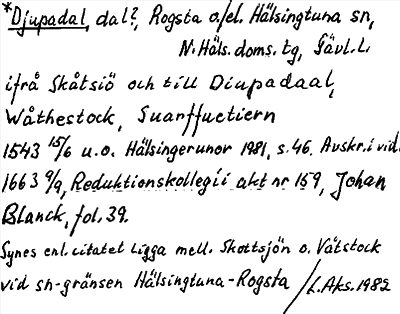 *Djupadal, dal?, Rogsta o./el. Hälsingtuna sn,
N. Häls. doms. tg, Gävl. l.
ifrå Skåtsiö och till Diupadaal,
Wåthestock, Suarffuetiern
1543 15/6 u.o. Hälsingerunor 1981, s. 46. Avskr. i vid.
1663 9/9, Reduktionskollegii akt nr 159, Johan
Blanck, fol. 39.
Synes enl. citatet ligga mell. Skottsjön o. Våtstock
vid sn-gränsen Hälsingtuna-Rogsta / L. Aks. 1982